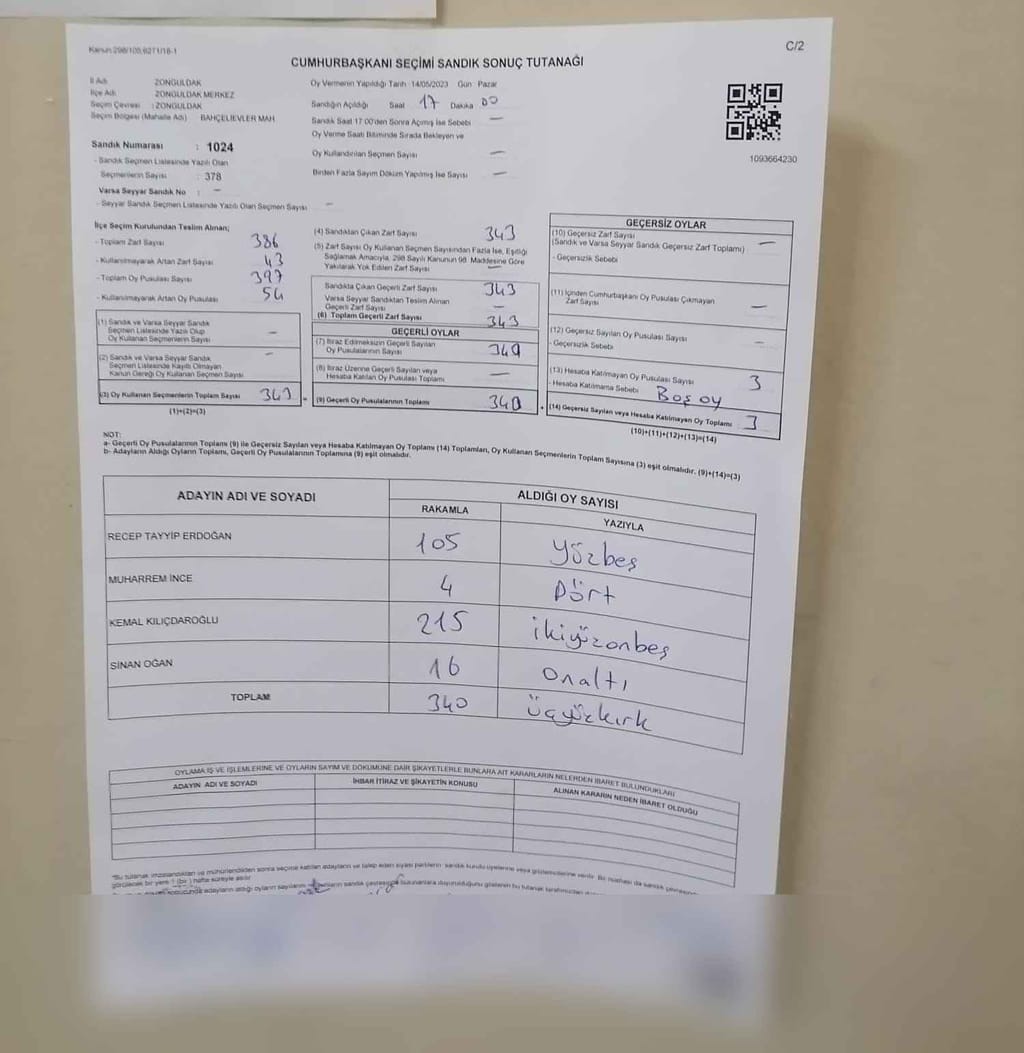 Kanun 298/105,6271/18-1
C/2
CUMHURBAŞKANI SEÇİMİ SANDIK SONUÇ TUTANAĞI
İl Adı ZONGULDAK
İlçe Adı ZONGULDAK MERKEZ
Seçim Çevresi : ZONGULDAK
Seçim Bölgesi (Mahalle Adı) BAHÇELİEVLER MAH
Sandık Numarası : 1024
- Sandık Seçmen Listesinde Yazılı Olan
Seçmenlerin Sayısı : 378
Varsa Seyyar Sandık No : -
- Seyyar Sandık Seçmen Listesinde Yazılı Olan Seçmen Sayısı -
Oy Vermenin Yapıldığı Tarih 14/05/2023 Gün Pazar
Sandığın Açıldığı Saat 17 Dakika 00
Sandık Saat 17:00'den Sonra Açılmış İse Sebebi -
Oy Verme Saati Bitiminde Sırada Bekleyen ve
Oy Kullandırılan Seçmen Sayısı -
Birden Fazla Sayım Döküm Yapılmış İse Sayısı -
1093664230
İlçe Seçim Kurulundan Teslim Alınan;
- Toplam Zarf Sayısı 386
- Kullanılmayarak Artan Zarf Sayısı 43
- Toplam Oy Pusulası Sayısı 397
- Kullanılmayarak Artan Oy Pusulası 54
(1) Sandık ve Varsa Seyyar Sandık
Seçmen Listesinde Yazılı Olup
Oy Kullanan Seçmenlerin Sayısı -
(2) Sandık ve Varsa Seyyar Sandık
Seçmen Listesinde Kayıtlı Olmayan
Kanun Gereği Oy Kullanan Seçmen Sayısı -
(3) Oy Kullanan Seçmenlerin Toplam Sayısı 343
(1)+(2)=(3)
(4) Sandıktan Çıkan Zarf Sayısı 343
(5) Zarf Sayısı Oy Kullanan Seçmen Sayısından Fazla İse, Eşitliği
Sağlamak Amacıyla, 298 Sayılı Kanunun 98. Maddesine Göre
Yakılarak Yok Edilen Zarf Sayısı -
Sandıkta Çıkan Geçerli Zarf Sayısı 343
Varsa Seyyar Sandıktan Teslim Alınan
Geçerli Zarf Sayısı -
(6) Toplam Geçerli Zarf Sayısı 343
GEÇERLİ OYLAR
(7) İtiraz Edilmeksizin Geçerli Sayılan
Oy Pusulalarının Sayısı 340
(8) İtiraz Üzerine Geçerli Sayılan veya
Hesaba Katılan Oy Pusulası Toplamı -
(9) Geçerli Oy Pusulalarının Toplamı 340
GEÇERSİZ OYLAR
(10) Geçersiz Zarf Sayısı
(Sandık ve Varsa Seyyar Sandık Geçersiz Zarf Toplamı) -
- Geçersizlik Sebebi
(11) İçinden Cumhurbaşkanı Oy Pusulası Çıkmayan
Zarf Sayısı -
(12) Geçersiz Sayılan Oy Pusulası Sayısı -
- Geçersizlik Sebebi
(13) Hesaba Katılmayan Oy Pusulası Sayısı 3
- Hesaba Katılmama Sebebi Boş oy
(14) Geçersiz Sayılan veya Hesaba Katılmayan Oy Toplamı 3
(10)+(11)+(12)+(13)=(14)
NOT:
a- Geçerli Oy Pusulalarının Toplamı (9) ile Geçersiz Sayılan veya Hesaba Katılmayan Oy Toplamı (14) Toplamları, Oy Kullanan Seçmenlerin Toplam Sayısına (3) eşit olmalıdır. (9)+(14)=(3)
b- Adayların Aldığı Oyların Toplamı, Geçerli Oy Pusulalarının Toplamına (9) eşit olmalıdır.
ADAYIN ADI VE SOYADI ALDIĞI OY SAYISI
RAKAMLA YAZIYLA
RECEP TAYYİP ERDOĞAN 105 Yüzbeş
MUHARREM İNCE 4 Dört
KEMAL KILIÇDAROĞLU 215 ikiyüzonbeş
SİNAN OĞAN 16 Onaltı
TOPLAM 340 Üçyüzkırk
OYLAMA İŞ VE İŞLEMLERİNE VE OYLARIN SAYIM VE DÖKÜMÜNE DAİR ŞİKAYETLERLE BUNLARA AİT KARARLARIN NELERDEN İBARET BULUNDUKLARI
ADAYIN ADI VE SOYADI İHBAR İTİRAZ VE ŞİKAYETİN KONUSU ALINAN KARARIN NEDEN İBARET OLDUĞU
*Bu tutanak imzalandıktan ve mühürlendikten sonra seçime katılan adayların ve talep eden siyasi partilerin sandık kurulu üyelerine veya gözlemcilerine verilir. Bir nüshası da sandık çevresinde
görülecek bir yere 1 (bir) hafta süreyle asılır.